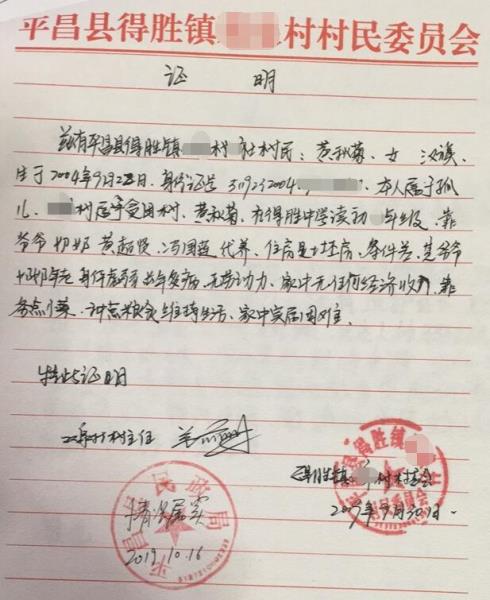 平昌县得胜镇 村村民委员会
证 明
兹有平昌县得胜镇 村 社村民:黄秋菊、女 汉族、
生于2004年9月22日.身份证号 5 19232004 . 本人属于孤
儿、 村属于贫困村、黄秋菊、在得胜中学读初 年级、靠
爷爷 奶奶 黄超贤、冯国莲 代养、住房是土坯房、条件差、其爷爷
奶奶年老 身体 长年多病、无劳动力、家中无任何经济收入、靠
务点小菜、种点粮食维持生活、家中实属困难.
特此证明
村主任
得胜镇 村村委会
2019年9月30日
情况属实
2019.10.16
民政局
村民委员会